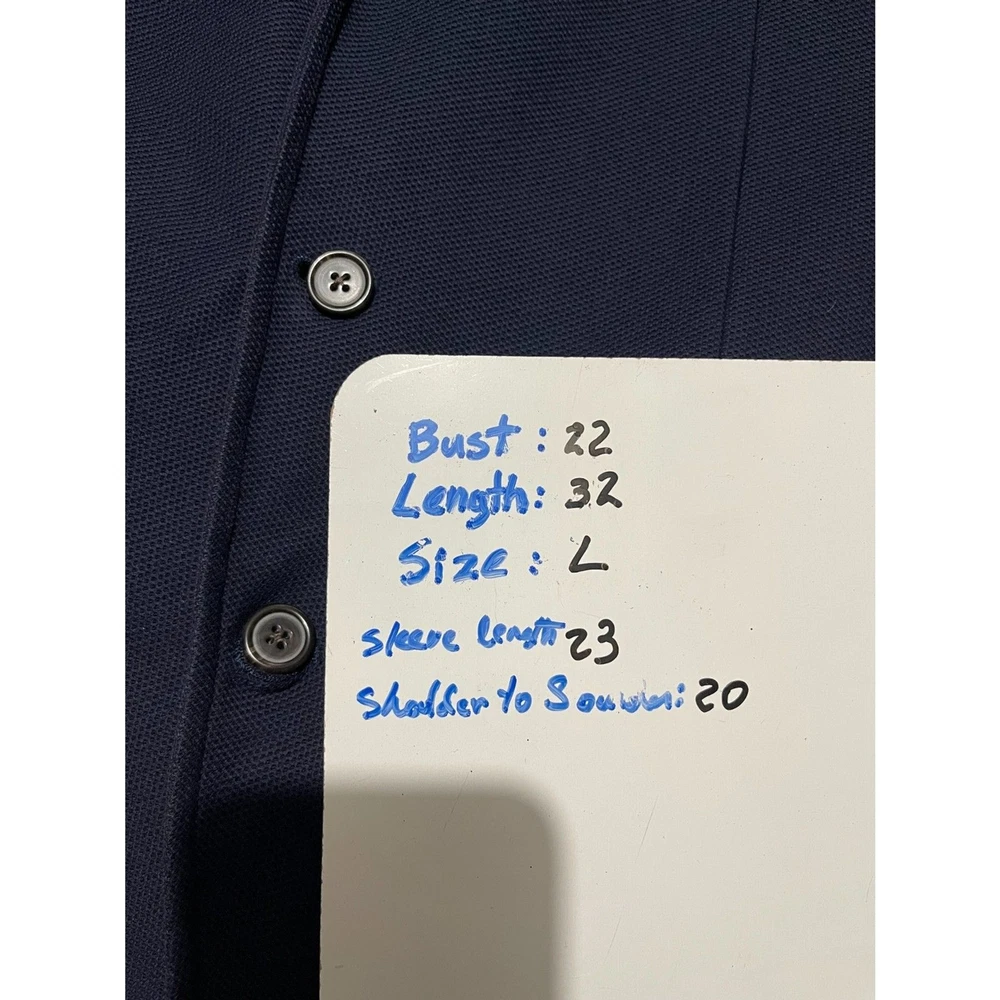 Bust: 22
Length: 32
Size: L
Sleeve length 23
to 20